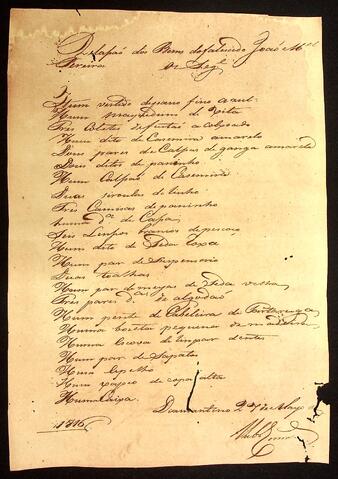 Relação dos Bens do falecido João M.el
Pereira
Hum vestido de pano fino azul
Hum de xita
Tres Coletes de fustão acolxoado
Hum dito de Casemira amarelo
Dous pares de Calças de ganga amarela
Dous ditos de paninho
Hum Calção de Casemira
Duas siroulas de linho
Tres Camisas de paninho
huma d.ª de Caça
Seis Lenços brancos de pescoço
Hum dito de Seda roxa
Hum par de Suspensorio
Duas toalhas
Hum par de meyas de Seda velha
Tres pares d.ª de algodaõ
Hum pente de Cabeleira de Tartaruga
Huma boceta pequena de madeira
Huma Escova de limpar dentes
Hum par de Sapatos
Hum Espelho
Hum xapeo de copa alta
Huma Caixa
Diamantino 27 de Mayo